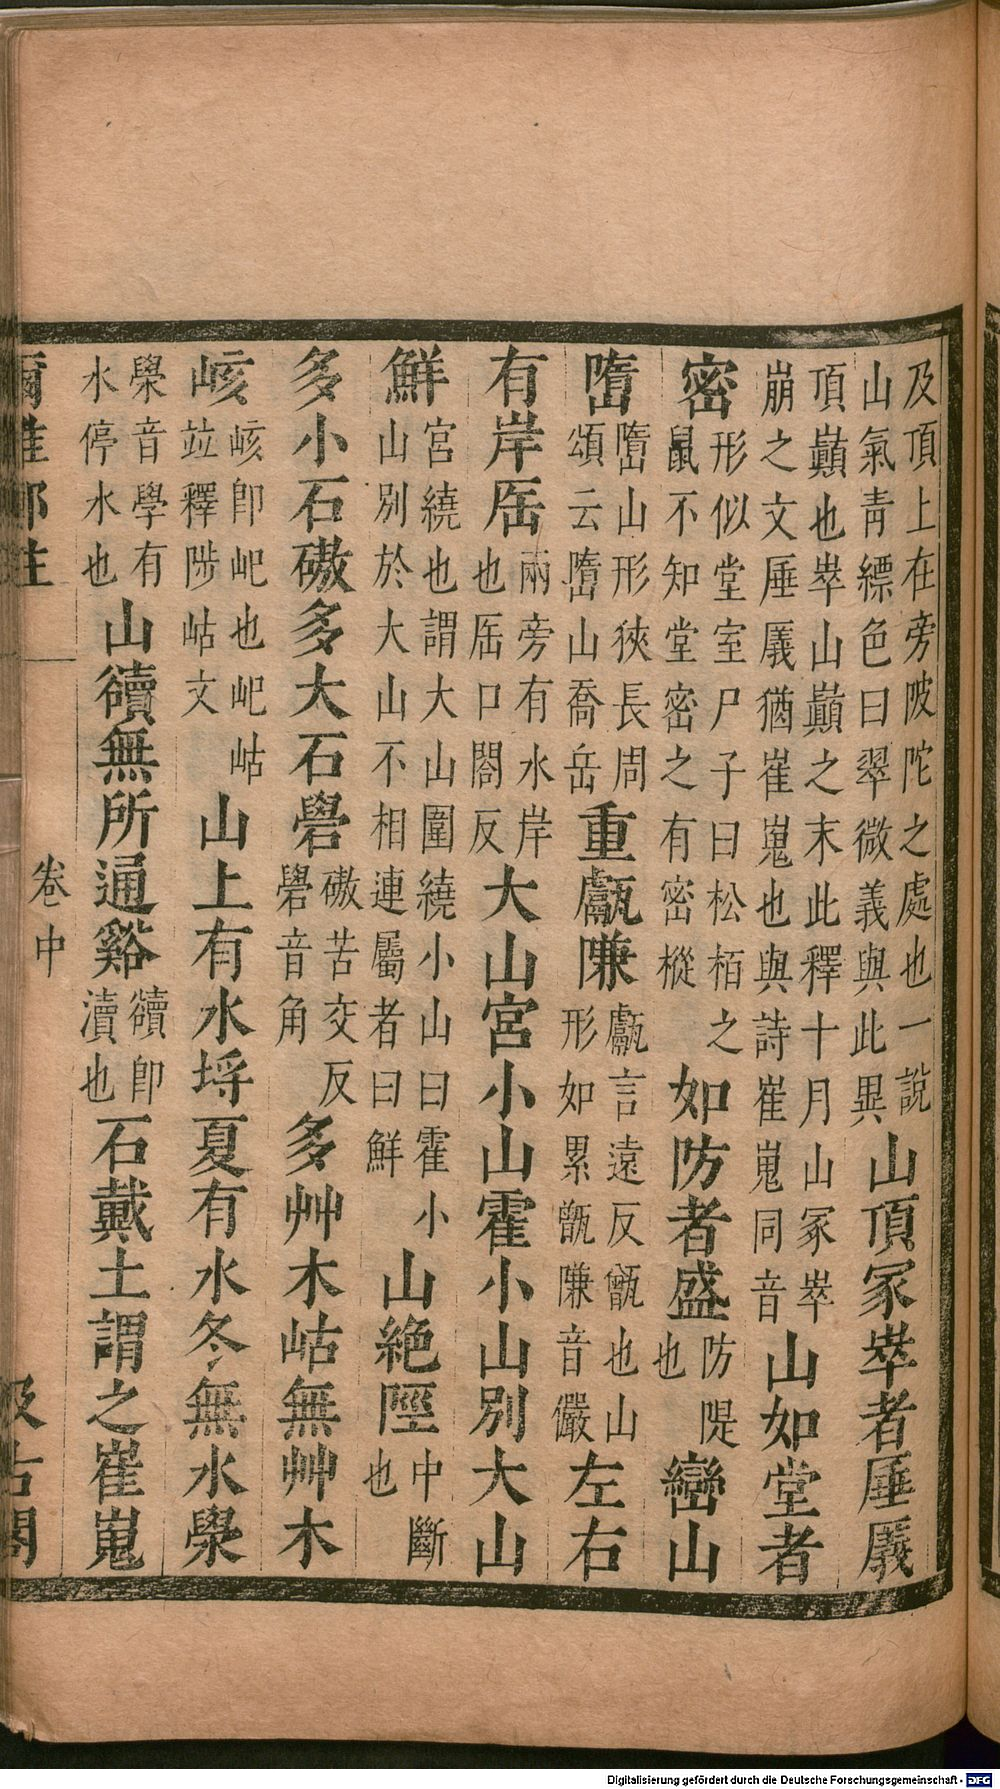 及頂上在旁陂陀之處也一說山氣青縹色曰翠微義與此異山頂冢崒者厜㕒
頂巔也崒山巔之末此釋十月山冢崒崩之文厜㕒猶崔嵬也與詩崔嵬同音山如堂者
密形似堂室尸子曰松栢之鼠不知堂密之有密樅如防者盛防隄也巒山
嶞嶞山形狹長周頌云嶞山喬岳重甗隒甗言遠反甑也山形如累甑隒音儼左右
有岸厒兩旁有水岸也厒口閤反大山宮小山霍小山別大山
鮮宮繞也謂大山圍繞小山曰霍小山別於大山不相連屬者曰鮮山絕陘中斷也
多小石磝多大石礐磝苦交反礐音角多艸木岵無艸木
峐峐卽屺也屺岵竝釋陟岵文山上有水埒夏有水冬無水澩
澩音學有水停水也山豄無所通谿豄卽瀆也石戴土謂之崔嵬
爾雅鄭註 卷中 汲古閣
Digitalisierung gefördert durch die Deutsche Forschungsgemeinschaft - DFG